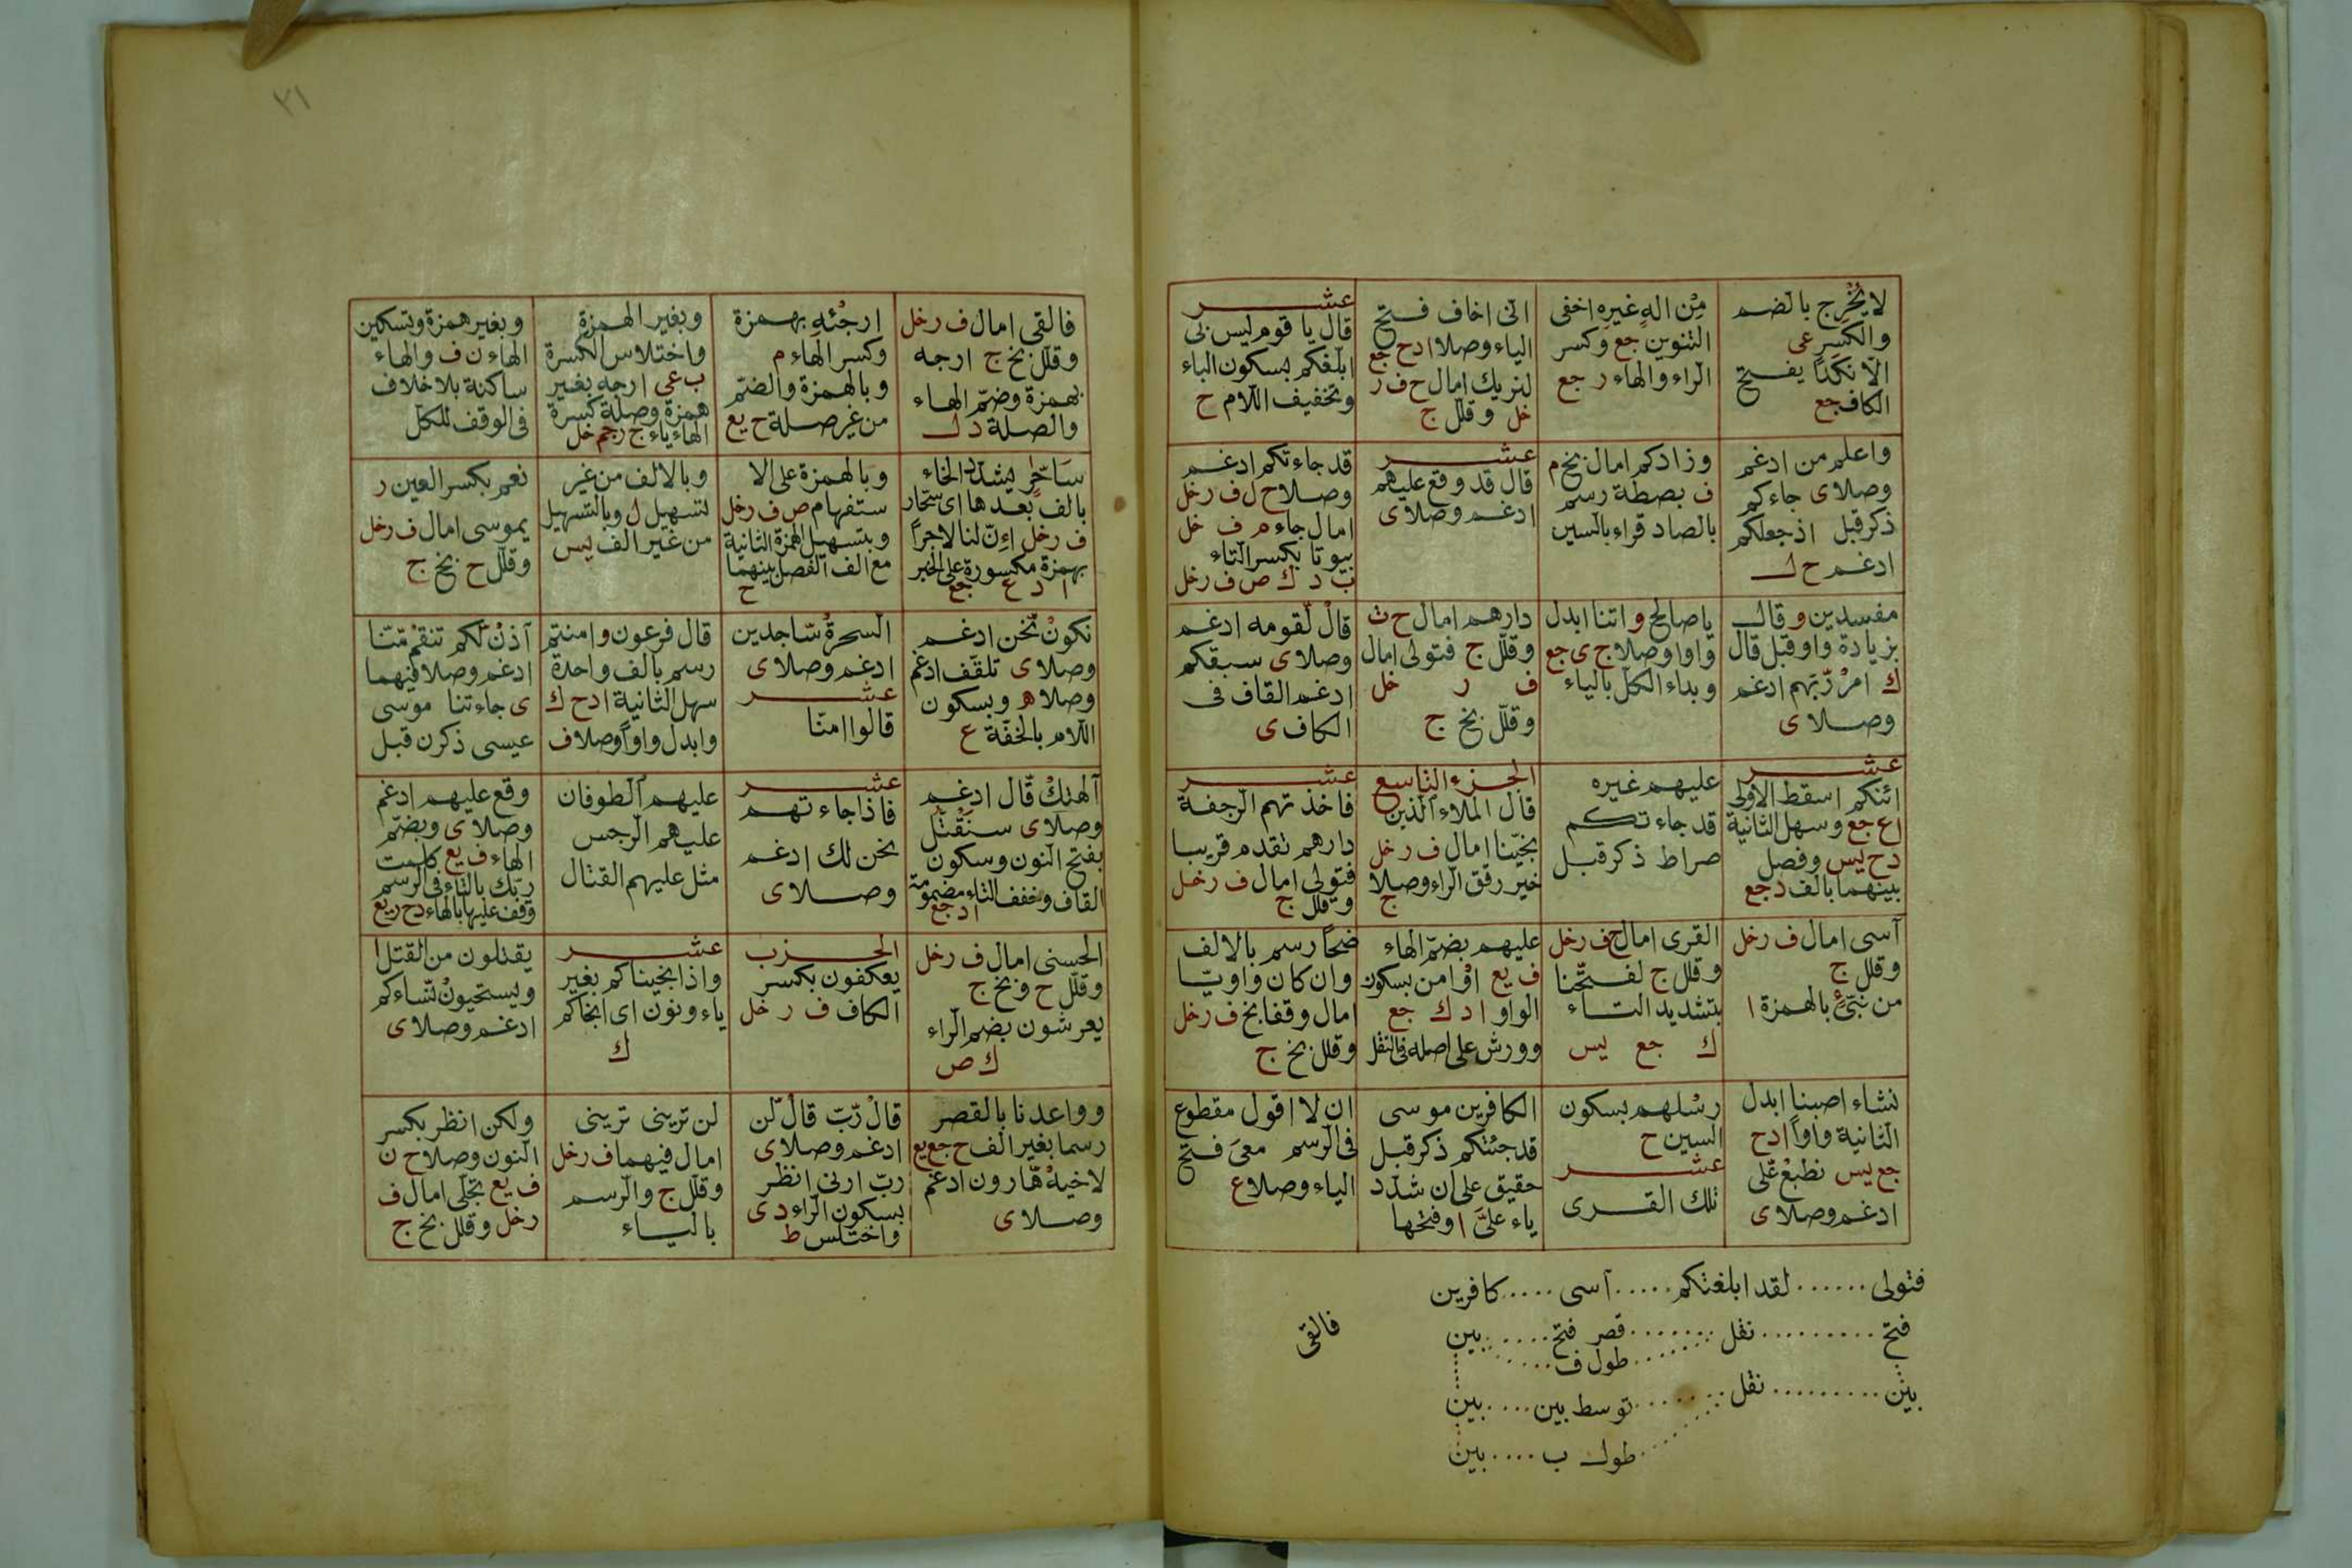 لا يُخْرِج بالضم
والكسر عى
الّا نَكَدًا يفتح
الكاف جع
مِنْ الهٍ غيرِه اخفى
التنوين جع وكسر
الراء والهاء ر جع
انى اخاف فتح
الياء وصلا ادح جع
لنريك امال ح ف ر
خل وقلل ج
عشر
قال يا قوم ليس بى
ابلغكم بسكون الباء
وتخفيف اللام ح
واعلم من ادغم
وصلا ى جاءكم
ذكر قبل اذ جعلكم
ادغم ح ل
وزادكم امال بخ م
ف بصطة رسم
بالصاد قراء بالسين
عشر
قال قد وقع عليهم
ادغم وصلا ى
قد جاءتكم ادغم
وصلا ح ل ف رخل
امال جاء م ف خل
بيوتا بكسر التاء
ب د ك ص ف رخل
مفسدين وقال
بزيادة واو قبل قال
ك امر ربهم ادغم
وصلا ى
يا صالح وائتنا ابدل
واوا وصلا ج ى جع
وبداء الكل بالياء
دارهم امال ح ث
وقلل ج فتولى امال
ف ر خل
وقلل بخ ج
قال لقومه ادغم
وصلا ى سبقكم
ادغم القاف فى
الكاف ى
عشر
ائنكم اسقط الاولى
اع جع وسهل الثانية
دح يس وفصل
بينهما بالف د جع
عليهم غيره
قد جاءتكم
صراط ذكر قبل
الجزء التاسع
قال الملاء الذين
نجينا امال ف رخل
خير رقق الراء وصلا
ج
عشر
فاخذتهم الرجفة
دارهم تقدم قريبا
فتولى امال ف رخل
وقلل ج
آسى امال ف رخل
وقلل ج
من نبئ بالهمزة ا
القرى امال ح ف رخل
وقلل ج لفتحنا
بتشديد التاء
ك جع يس
عليهم بضم الهاء
ف يع اوْ امن بسكون
الواو ا د ك جع
وورش على اصله فى النقل
ضحًا رسم بالالف
وان كان واويّا
امال وقفا بخ ف رخل
وقلل بخ ج
نشاء اصبنا ابدل
الثانية واوا ادح
جع يس نطبع على
ادغم وصلا ى
رسْلهم بسكون
السين ح
عشر
تلك القرى
الكافرين موسى
قد جئتكم ذكر قبل
حقيق على ان شدد
ياء علىَّ ا وفتحها
ان لا اقول مقطوع
فى الرسم معىَ فتح
الياء وصلا ع
فتولى ...... لقد ابلغتكم ..... آسى .... كافرين
فتح ......... نقل ....... قصر فتح ..... بين
طول ف .....
بين ......... نقل ....... توسط بين .... بين
طول ب .... بين
فالقى
٢١
فالقى امال ف رخل
وقلل بخ ج ارجه
بهمزة وضم الهاء
والصلة د ل
ارجئه بهمزة
وكسر الهاء م
وبالهمزة والضم
من غير صلة ح يع
وبغير الهمزة
واختلاس الكسرة
ب عى ارجه بغير
همزة وصلة كسرة
الهاء ياء ج ر جم خل
وبغير همزة وتسكين
الهاء ن ف والهاء
ساكنة بلا خلاف
فى الوقف للكل
سَاحِر بشدّ الخاء
بالف بعدها اى سحّار
ف رخل اءِنّ لنا لاجرا
بهمزة مكسورة على الخبر
ا د ع جع
وبالهمزة على الا
ستفهام ص ف رخل
وبتسهيل الهمزة الثانية
مع الف الفصل بينهما
ح
وبالالف من غير
لتسهيل ل وبالتسهيل
من غير الف يس
نعم بكسر العين ر
يموسى امال ف رخل
وقلل ح بخ ج
نكون نّحن ادغم
وصلا ى تلقف ادغم
وصلا ه وبسكون
اللام بالخفة ع
السحرة ساجدين
ادغم وصلا ى
عشر
قالوا امنّا
قال فرعون وامنتم
رسم بالف واحدة
سهل الثانية ادح ك
وابدل واوا وصلا ف
آذن لّكم تنقم منّا
ادغم وصلا فيهما
ى جاءتنا موسى
عيسى ذكرن قبل
آلهتك قّال ادغم
وصلاى سنَقْتُل
بفتح النون وسكون
القاف وخفف التاء مضمومة
ا د جع
عشر
فاذا جاءتهم
نحن لك ادغم
وصلا ى
عليهم الطوفان
عليهم الرجس
مثل عليهم القتال
وقع عليهم ادغم
وصلا ى وبضم
الهاء ف يع كلمت
ربك بالتاء فى الرسم
وقف عليها بالهاء دح ر يع
الحسنى امال ف رخل
وقلل ح وبخ ج
يعرشون بضم الراء
ك ص
الحزب
يعكفون بكسر
الكاف ف ر خل
عشر
واذ انجيناكم بغير
ياء ونون اى انجاكم
ك
يقتلون من القتل ا
ويستحيون نّساءكم
ادغم وصلا ى
وواعدنا بالقصر
رسما بغير الف ح جع يع
لاخيه هّارون ادغم
وصلا ى
قال رّبّ قال لّن
ادغم وصلا ى
ربّ ارنى انظر
بسكون الراء د ى
واختلس ط
لن ترينى ترينى
امال فيهما ف رخل
وقلل ج والرسم
بالياء
ولكن انظر بكسر
النون وصلا ح ن
ف يع تجلّى امال ف
رخل وقلل بخ ج